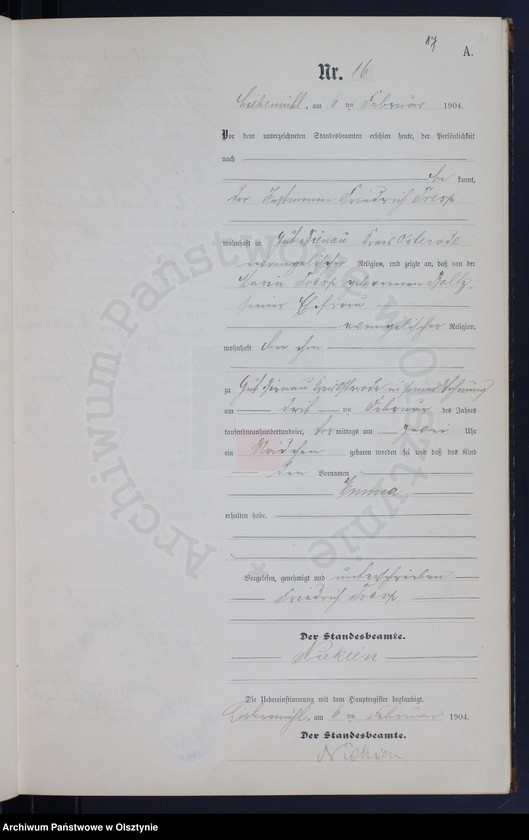 17
A.
Nr. 16
Liebemühl, am 6 ten Februar 1904.
Vor dem unterzeichneten Standesbeamten erschien heute, der Persönlichkeit
nach
be kannt,
der Instmann Friedrich Tresp
wohnhaft in Gut Bienau Kreis Osterode
evangelischer Religion, und zeigte an, daß von der
Tresp geborenen
seiner Ehefrau
evangelischer Religion,
wohnhaft bei ihm
zu Gut Bienau Kreis Osterode in seiner Wohnung
am drit ten Februar des Jahres
tausendneunhundertundvier, vormittags um zwei Uhr
ein Mädchen geboren worden sei und daß das Kind
den Vornamen
Emma
erhalten habe.
Vorgelesen, genehmigt und unterschrieben
Friedrich Tresp
Der Standesbeamte.
Die Uebereinstimmung mit dem Hauptregister beglaubigt.
Liebemühl, am 6 ten Februar 1904.
Der Standesbeamte.
Archiwum Państwowe w Olsztynie *
Archiwum Państwowe w Olsztynie